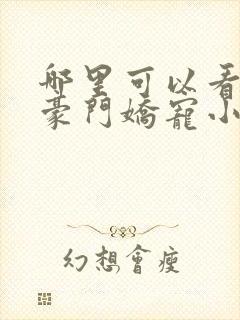 哪里可以看
豪門嬌寵小
幻想會瘦